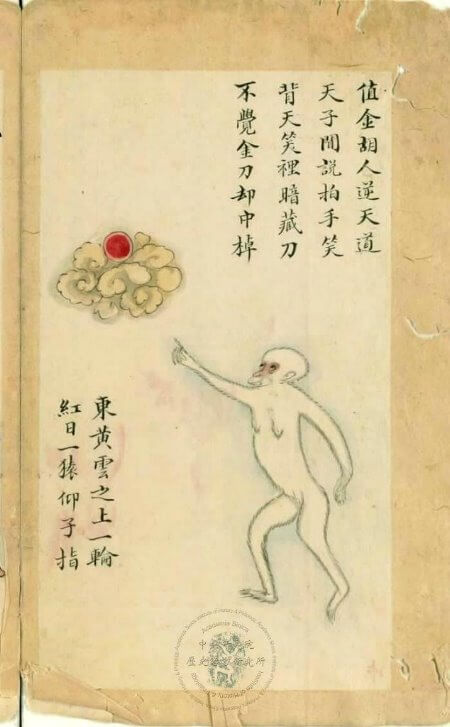 值金胡人逆天道
天子聞說拍手笑
背天笑裡暗藏刀
不覺金刀却中掉
東黃雲之上一輪
紅日一猿仰子指
Academia Sinica
中央研究院
歷史語言研究所